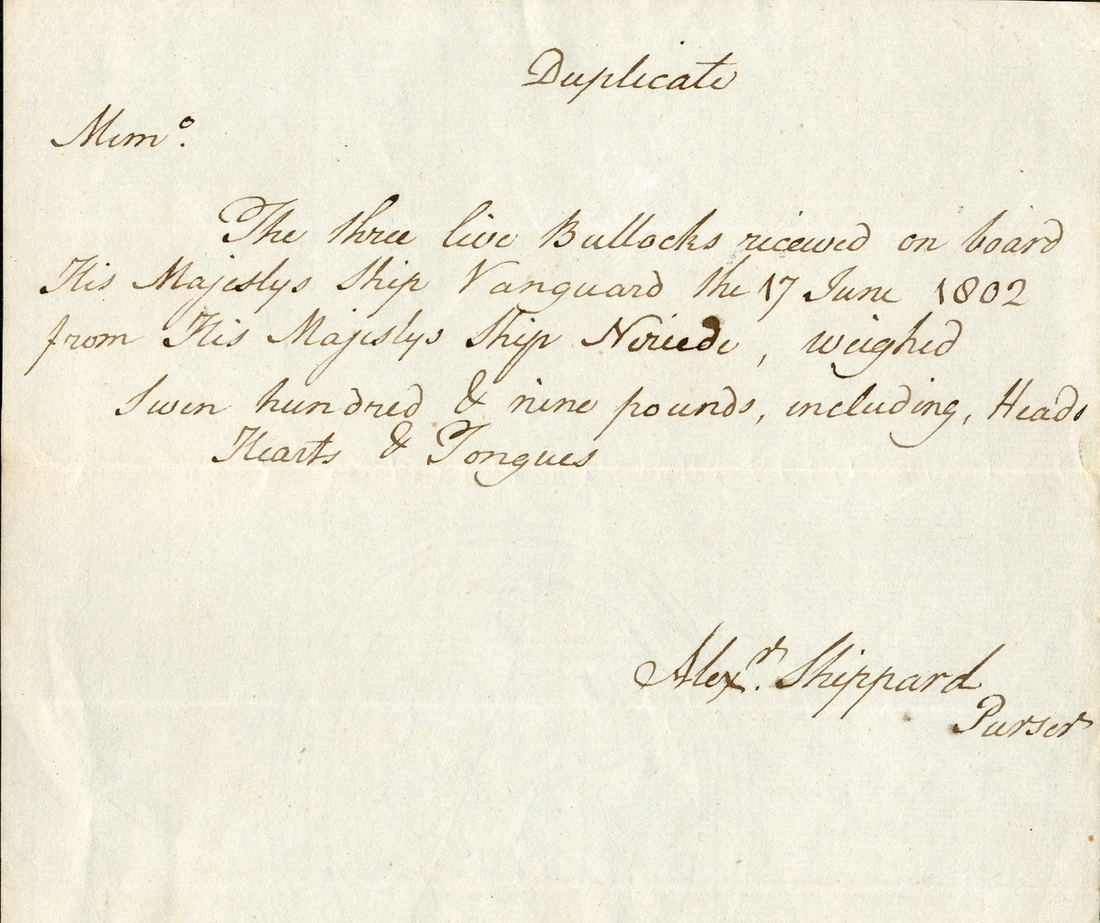 Duplicate
Memº.
The three live Bullocks received on board
His Majestys Ship Vanguard the 17 June 1802
from His Majestys Ship Neriede, weighed
Seven hundred & nine pounds, including, Heads
Hearts & Tongues
Alexr. Shippard
Purser